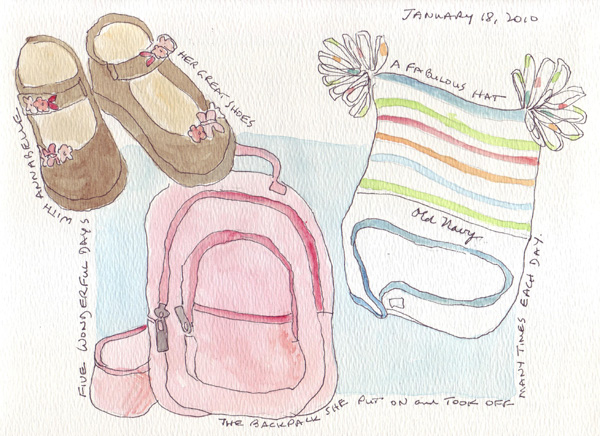 JANUARY 18, 2010
HER GREAT SHOES
A FABULOUS HAT
Old Navy
FIVE WONDERFUL DAYS WITH ANNABELLE
THE BACKPACK SHE PUT ON and TOOK OFF MANY TIMES EACH DAY.